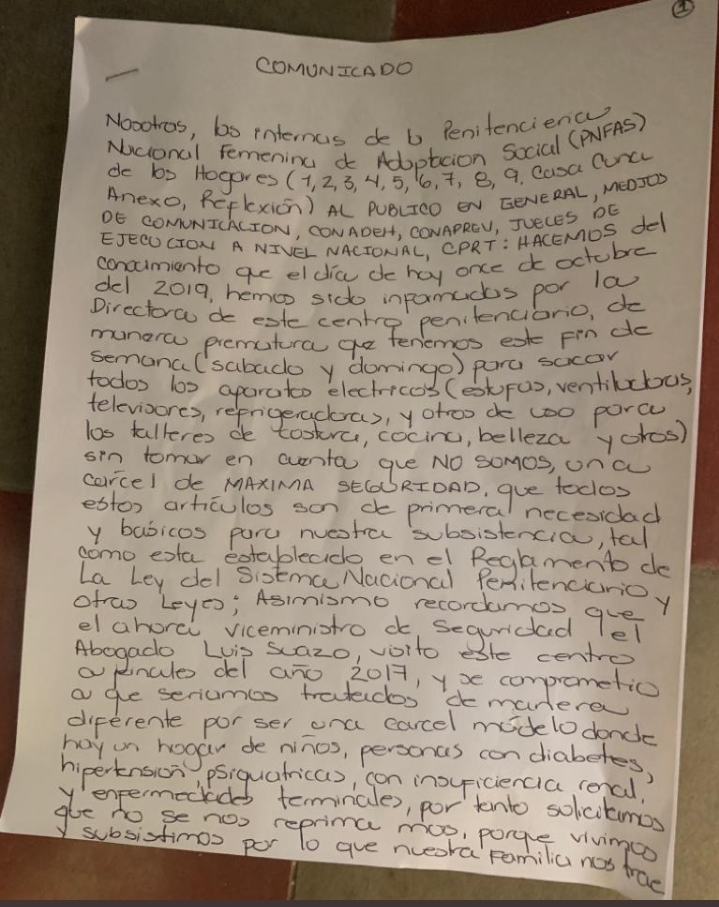 1
COMUNICADO
Nosotros, las internas de la Penitencieria
Nacional Femenina de Adaptacion Social (PNFAS)
de los Hogares (1, 2, 3, 4, 5, 6, 7, 8, 9, Casa Cuna
Anexo, Reflexión) AL PUBLICO EN GENERAL, MEDIOS
DE COMUNICACION, CONADEH, CONAPREV, JUECES DE
EJECUCION A NIVEL NACIONAL, CPRT: HACEMOS del
conocimiento que el día de hoy once de octubre
del 2019, hemos sido informadas por la
Directora de este centro penitenciario, de
manera prematura que tenemos este fin de
semana (sabado y domingo) para saccar
todos los aparatos electricos (estufas, ventiladoras,
televisores, refrigeradoras, y otros de uso para
los talleres de costura, cocina, belleza y otros)
sin tomar en cuenta que NO SOMOS, una
carcel de MAXIMA SEGURIDAD, que todos
estos artículos son de primera necesidad
y basicos para nuestra subsistencia, tal
como esta establecido en el Reglamento de
La Ley del Sistema Nacional Penitenciario y
otras Leyes; Asimismo recordamos que
el ahora viceministro de Seguridad el
Abogado Luis Suazo, visito este centro
a finales del año 2017, y se comprometio
a que seriamos tratadas de manera
diferente por ser una carcel modelo donde
hay un hogar de niños, personas con diabetes,
hipertensión, psiquiatricas, con insuficiencia renal,
y enfermedades terminales, por tanto solicitamos
que no se nos reprima mas, porque vivimos
y subsistimos por lo que nuestra familia nos trae